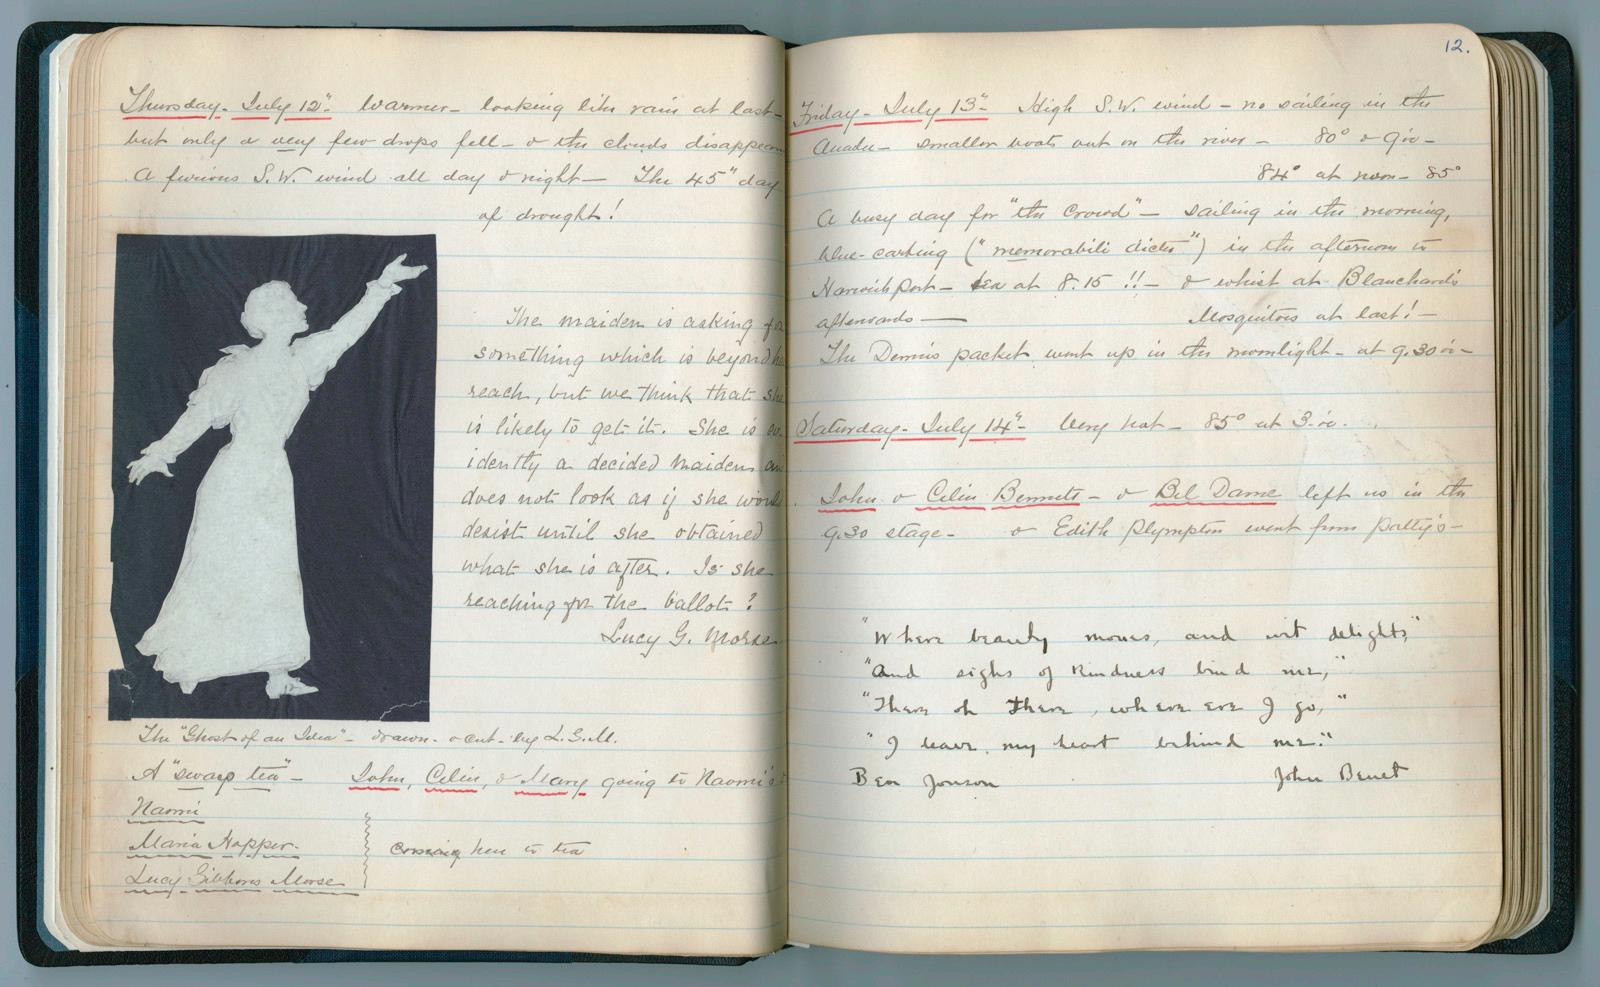 Thursday - July 12" Warmer - looking like rain at last -
but only a very few drops fell - & the clouds disappear
A furious S.W. wind all day & night - The 45" day
of drought!
The maiden is asking for
something which is beyond
reach, but we think that she
is likely to get it. She is ev-
idently a decided maiden and
does not look as if she would
desist until she obtained
what she is after. Is she
reaching for the ballot?
Lucy G. Morse
The "Ghost of an Idea" - drawn - & cut - by L.G.M.
A "swap tea" - John, Celia, & Mary going to Naomi's
Naomi
Maria Hopper -
Lucy Gibbons Morse
coming here to tea
12.
Friday - July 13" High S.W. wind - no sailing in the
- smaller boats out on the river - 80° & 9.00 -
84° at noon - 85°
A busy day for "the Crowd" - sailing in the morning,
blue-carting ("memorabili dictu") in the afternoon to
Harwichport - tea at 8.15 !! - & whist at Blanchard's
afterwards - Mosquitoes at last! -
The Dennis packet went up in the moonlight - at 9.30 -
Saturday - July 14" Very hot - 85° at 3.00.
John & Celia Bennets - & Bel Dame left us in the
9.30 stage - & Edith Plympton went from Patty's -
"Where beauty moves, and wit delights,"
"And sighs of kindness bind me,"
"There oh there, where ere I go,"
"I leave my heart behind me."
Ben Jonson John Benet